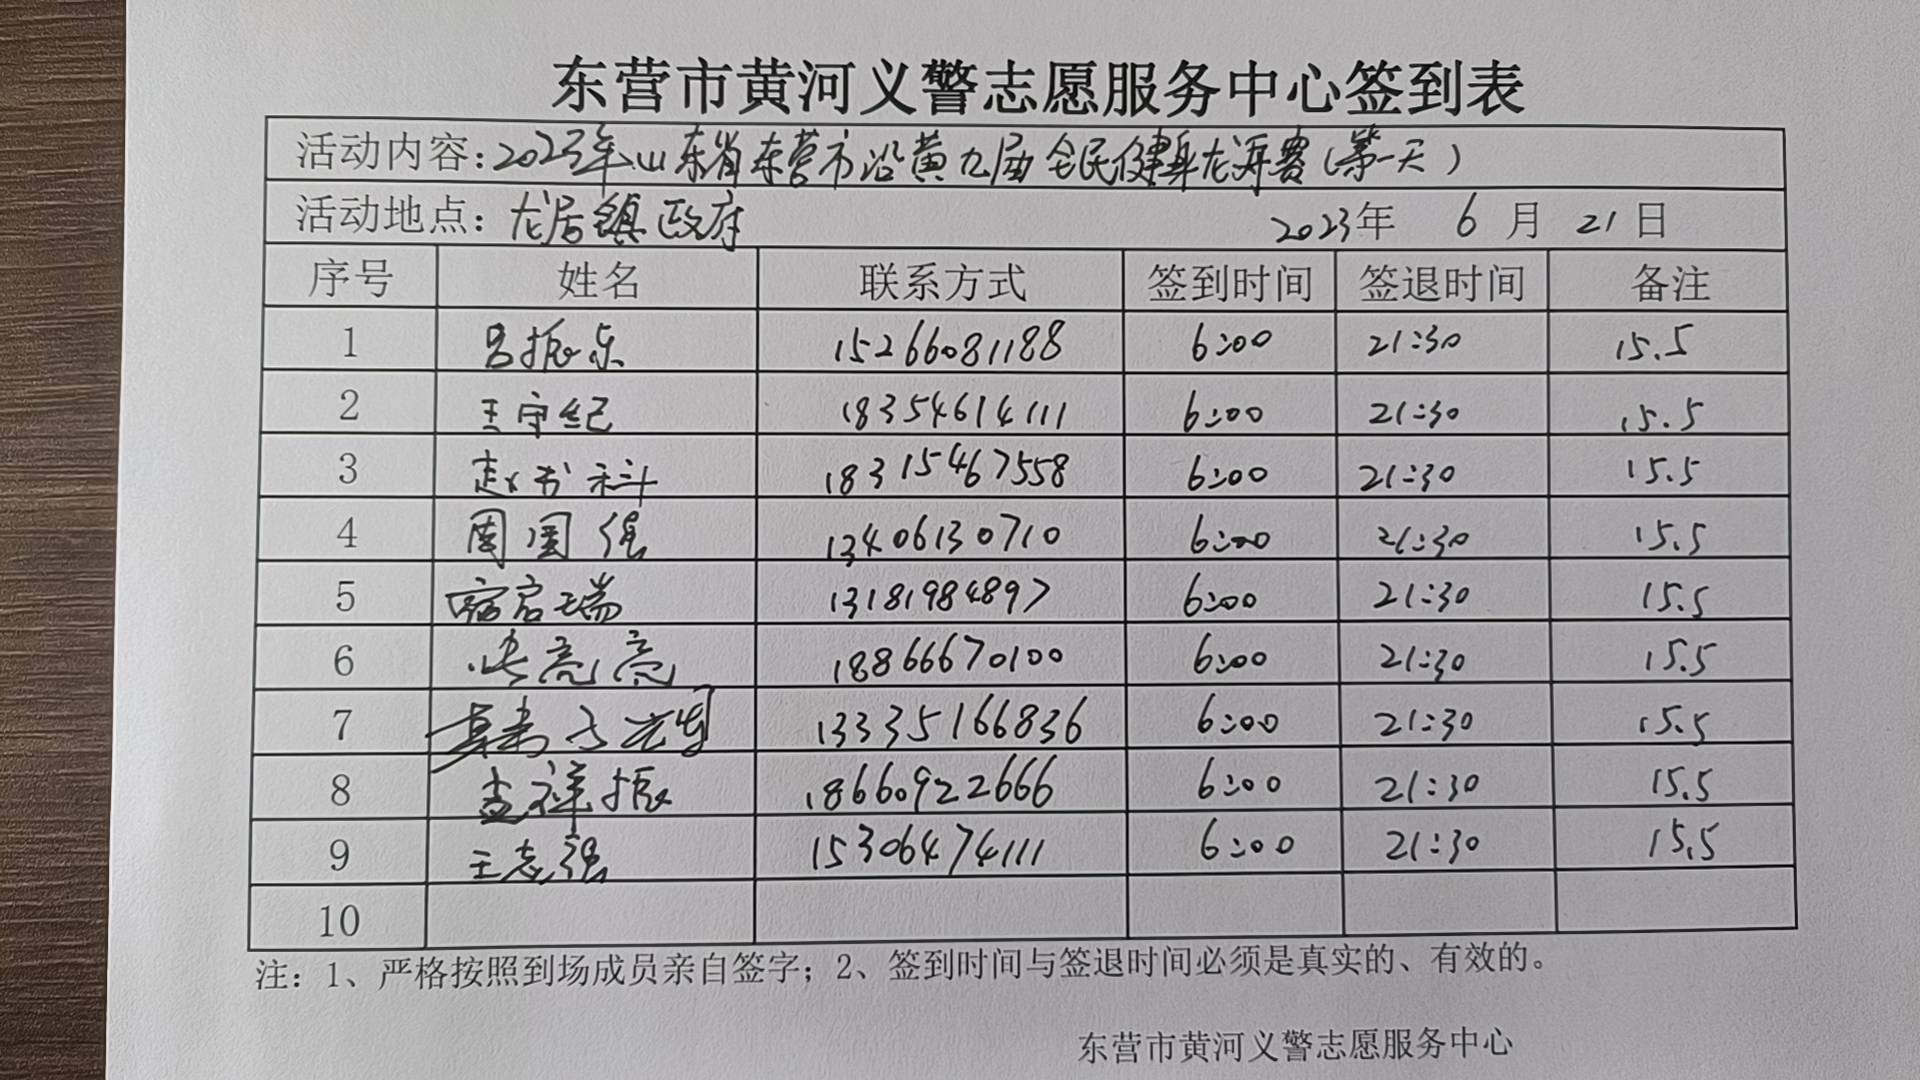 东营市黄河义警志愿服务中心签到表
活动内容：2023年山东省东营市沿黄九届全民健身龙舟赛（第一天）
活动地点：龙居镇政府 2023年 6 月 21 日
序号 姓名 联系方式 签到时间 签退时间 备注
1 吕振东 15266081188 6:00 21:30 15.5
2 王守纪 18354614111 6:00 21:30 15.5
3 赵书科 18315467558 6:00 21:30 15.5
4 周国强 13406130710 6:00 21:30 15.5
5 宿启瑞 13181984897 6:00 21:30 15.5
6 张亮亮 18866670100 6:00 21:30 15.5
7 13335166836 6:00 21:30 15.5
8 孟祥振 18660922666 6:00 21:30 15.5
9 王志强 15306474111 6:00 21:30 15.5
10
注：1、严格按照到场成员亲自签字；2、签到时间与签退时间必须是真实的、有效的。
东营市黄河义警志愿服务中心